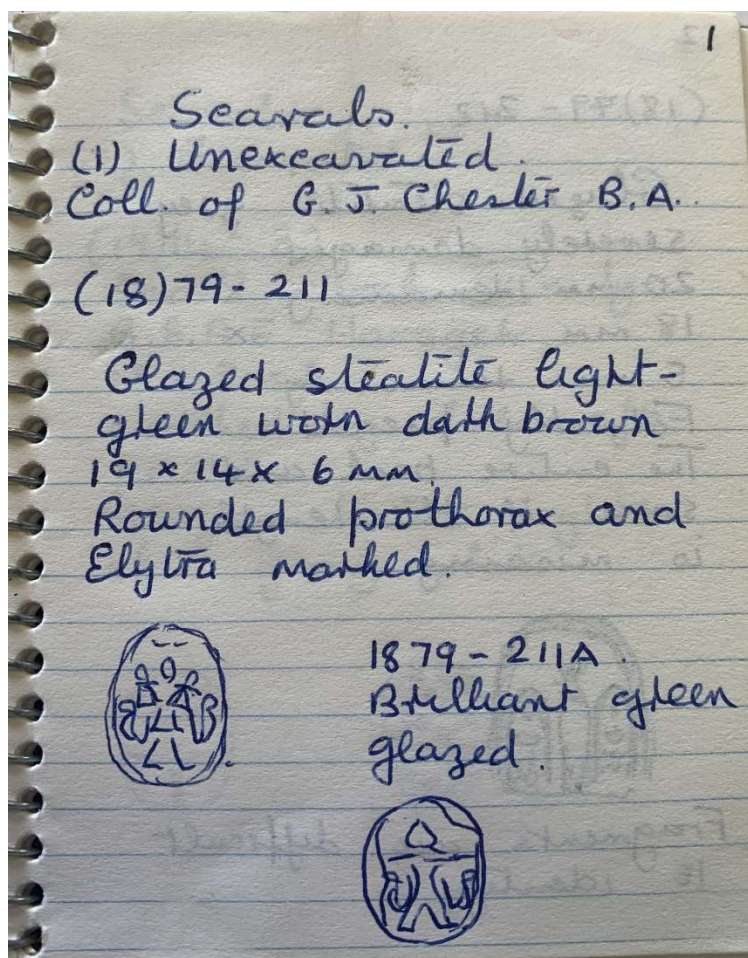 1
Scarabs.
(1) Unexcavated.
Coll. of G. J. Chester B.A.
(18)79-211
Glazed steatite light-
green worn dark brown
19 x 14 x 6 mm.
Rounded prothorax and
Elytra marked.
1879-211A.
Brilliant green
glazed.